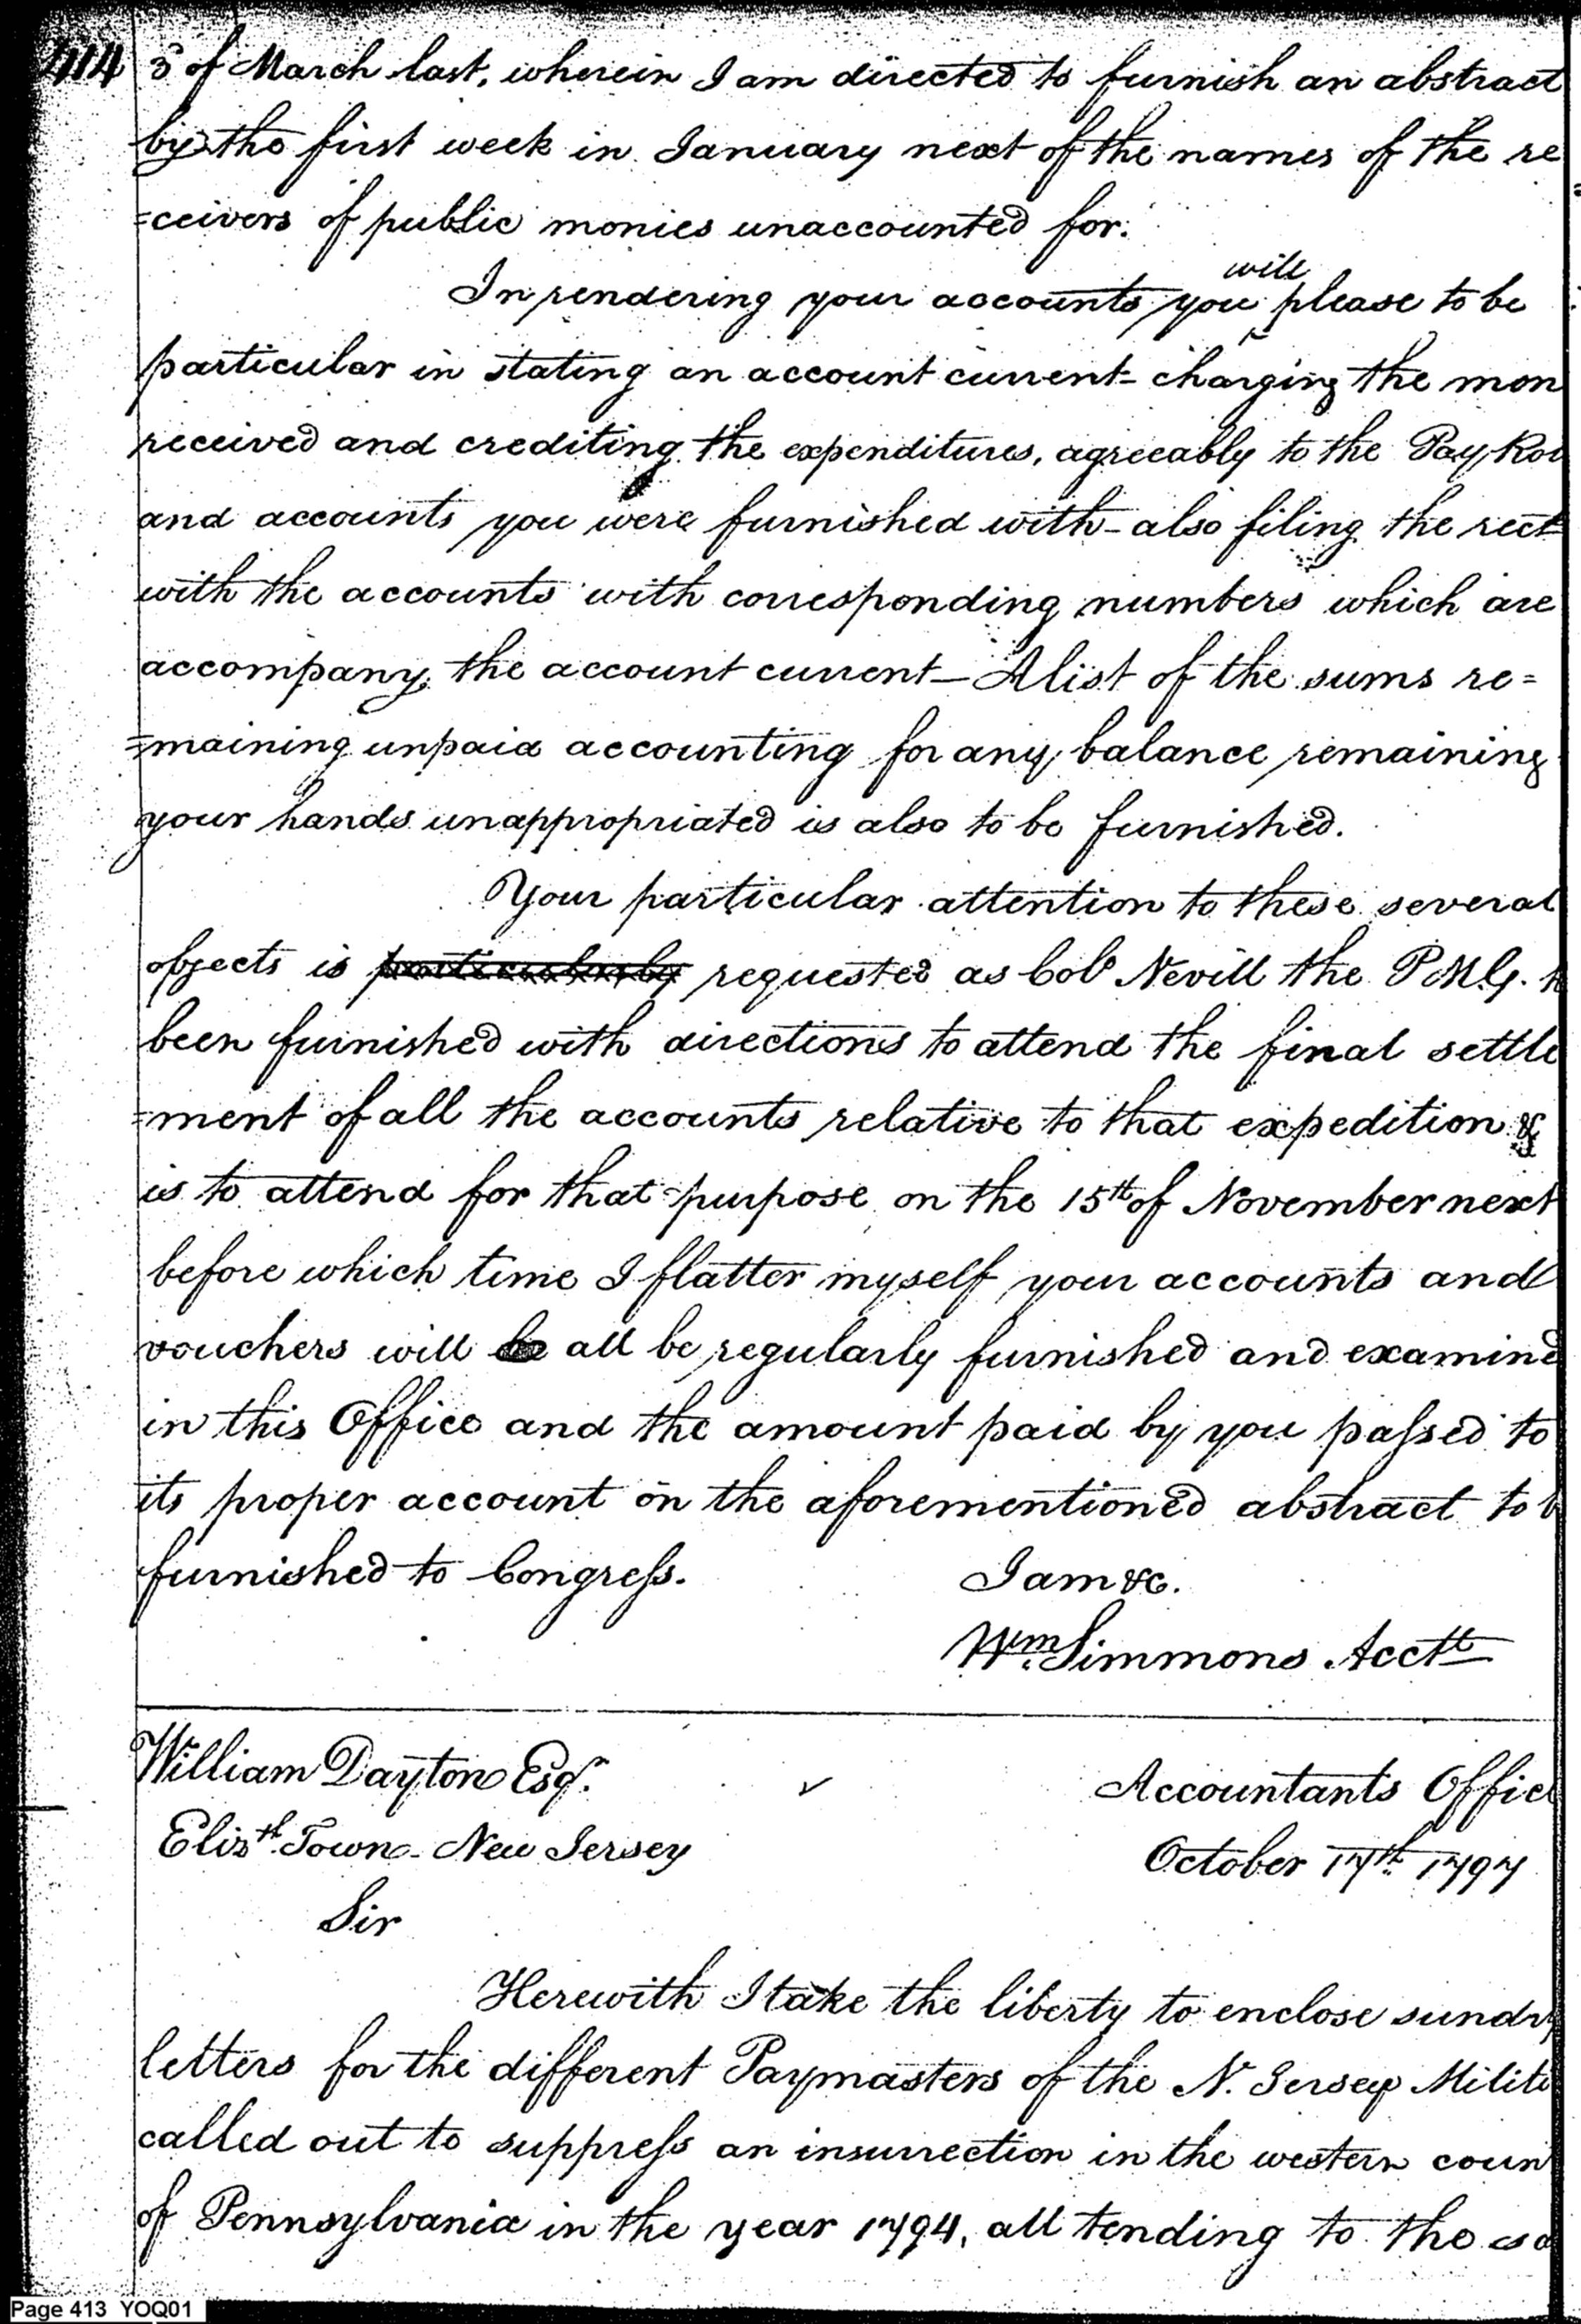 414 3 of March last, wherein I am directed to furnish an abstract
by the first week in January next of the names of the re
=ceivers of public monies unaccounted for.
In rendering your accounts you will please to be
particular in stating an account current - charging the mon
received and crediting the expenditures, agreeably to the Pay Ro
and accounts you were furnished with - also filing the rect
with the accounts with corresponding numbers which are
accompany the account current — A list of the sums re=
=maining unpaid accounting for any balance remaining
your hands unappropriated is also to be furnished.
Your particular attention to these several
objects is particularly requested as Colo Nevill the P M G.
been furnished with directions to attend the final settle
=ment of all the accounts relative to that expedition &
is to attend for that purpose on the 15th of November next
before which time I flatter myself your accounts and
vouchers will be all be regularly furnished and examind
in this Office and the amount paid by you passed to
its proper account on the aforementioned abstract to b
furnished to Congress. I am &c.
Wm Simmons Acctt
William Dayton Esqr. Accountants Offic
Elizth Town - New Jersey October 17th 1797
Sir
Herewith I take the liberty to enclose sundry
letters for the different Paymasters of the N. Jersey Militi
called out to suppress an insurrection in the western coun
of Pennsylvania in the year 1794, all tending to the sa
Page 413 YOQ01